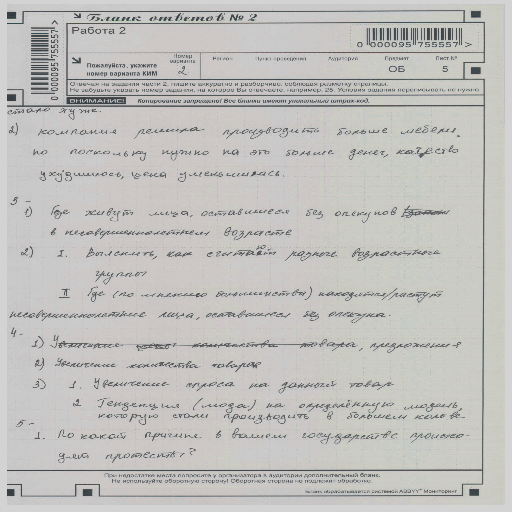 Бланк ответов № 2
Работа 2
0 000095 755557 >
Пожалуйста, укажите номер варианта КИМ
Номер варианта
2
Регион
Пункт проведения
Аудитория
Предмет
ОБ
Лист №
5
0 000095 755557 >
Отвечая на задания части 2, пишите аккуратно и разборчиво, соблюдая разметку страницы.
Не забудьте указать номер задания, на которое Вы отвечаете, например, 25. Условия задания переписывать не нужно
ВНИМАНИЕ!
Копирование запрещено! Все бланки имеют уникальный штрих-код.
стало хуже.
2) компания решила производить больше мебели,
но поскольку нужно на это больше денег, качество
ухудшилось, цена уменьшилась.
3 -
1) Где живут лица, оставшиеся без опекунов
в несовершеннолетнем возрасте
2) I. Выяснить, как считают разные возрастные
группы
II Где (по мнению большинства) находятся/растут
несовершеннолетние лица, оставшиеся без опекуна.
4 -
1) товара, предложения
2) Увеличение количества товаров
3) 1. Увеличение спроса на данный товар
2 Тенденция (мода) на определённую модель,
которую стали производить в большем кол-ве
5 -
1. По какой причине в вашем государстве происхо-
дят протесты?
При недостатке места попросите у организатора в аудитории дополнительный бланк.
Не используйте оборотную сторону! Оборотная сторона не подлежит обработке.
Бланк обрабатывается системой ABBYY Мониторинг